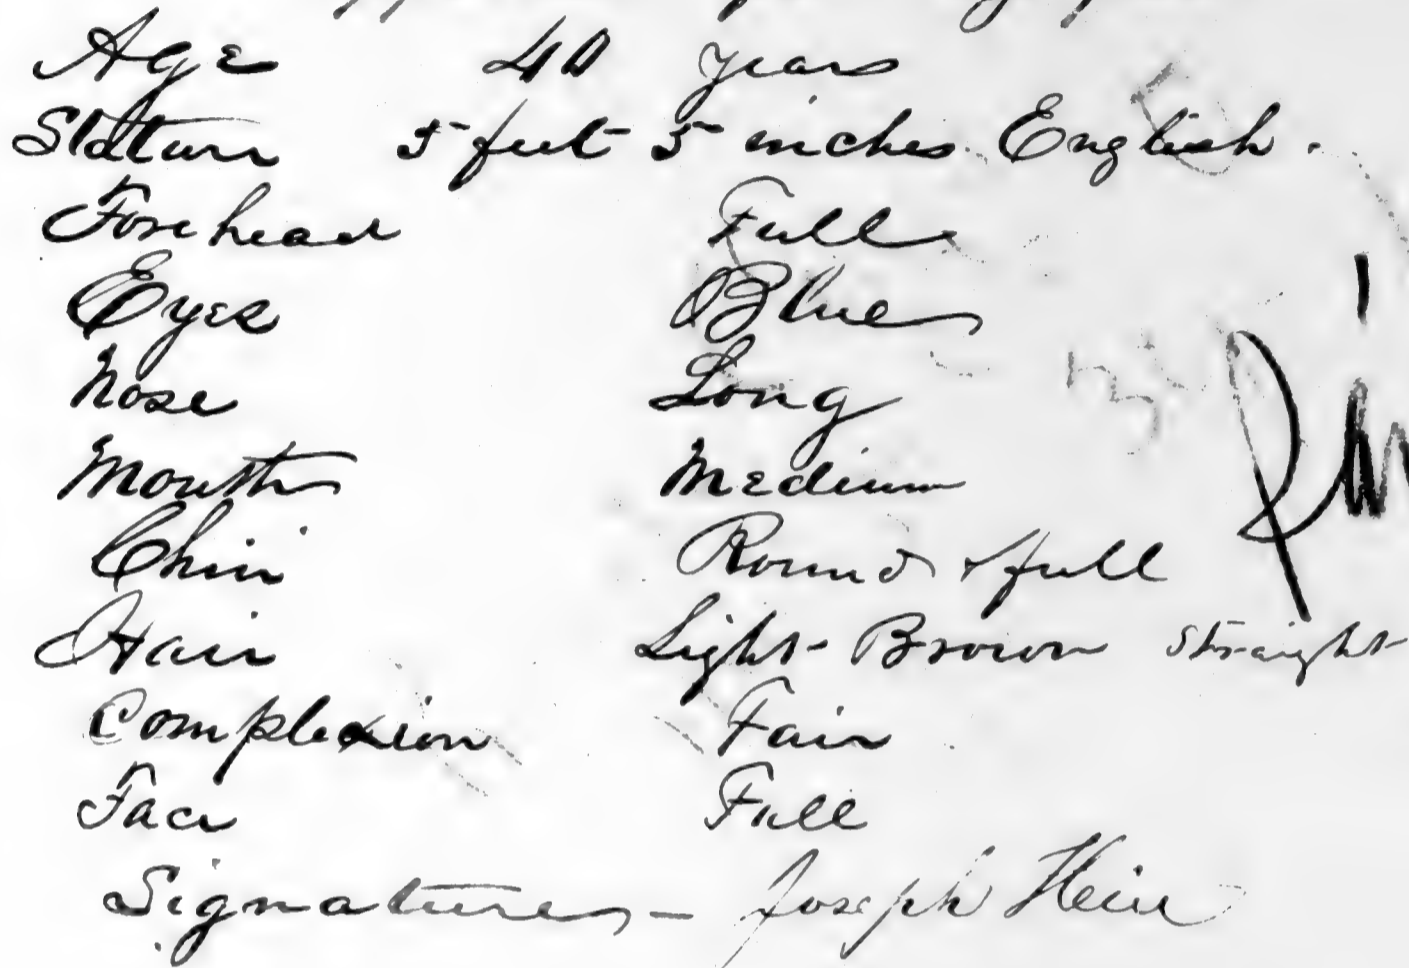 Age 40 years
Stature 5 feet 5 inches English.
Forehead Full
Eyes Blue
Nose Long
Mouth Medium
Chin Round & full
Hair Light Brown Straight
Complexion Fair
Face Full
Signature - Joseph